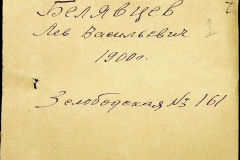 Белявцев
Лев Васильевич
1900г.
Заслободская № 161
1